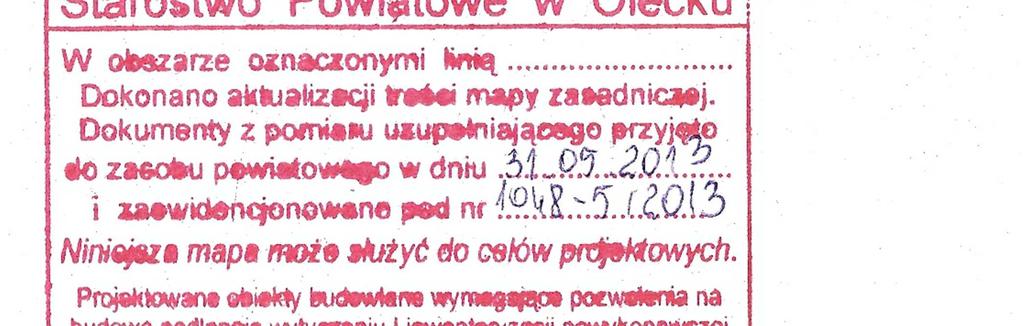 Starostwo Powiatowe w Olecku
W obszarze oznaczonymi linią ..............................
Dokonano aktualizacji treści mapy zasadniczej.
Dokumenty z pomiaru uzupełniającego przyjęto
do zasobu powiatowego w dniu 31.05.2013
i zaewidencjonowane pod nr 1048-5/2013
Niniejsza mapa może służyć do celów projektowych.
Projektowane obiekty budowlane wymagające pozwolenia na
budowę podlegają wytyczeniu i inwentaryzacji powykonawczej